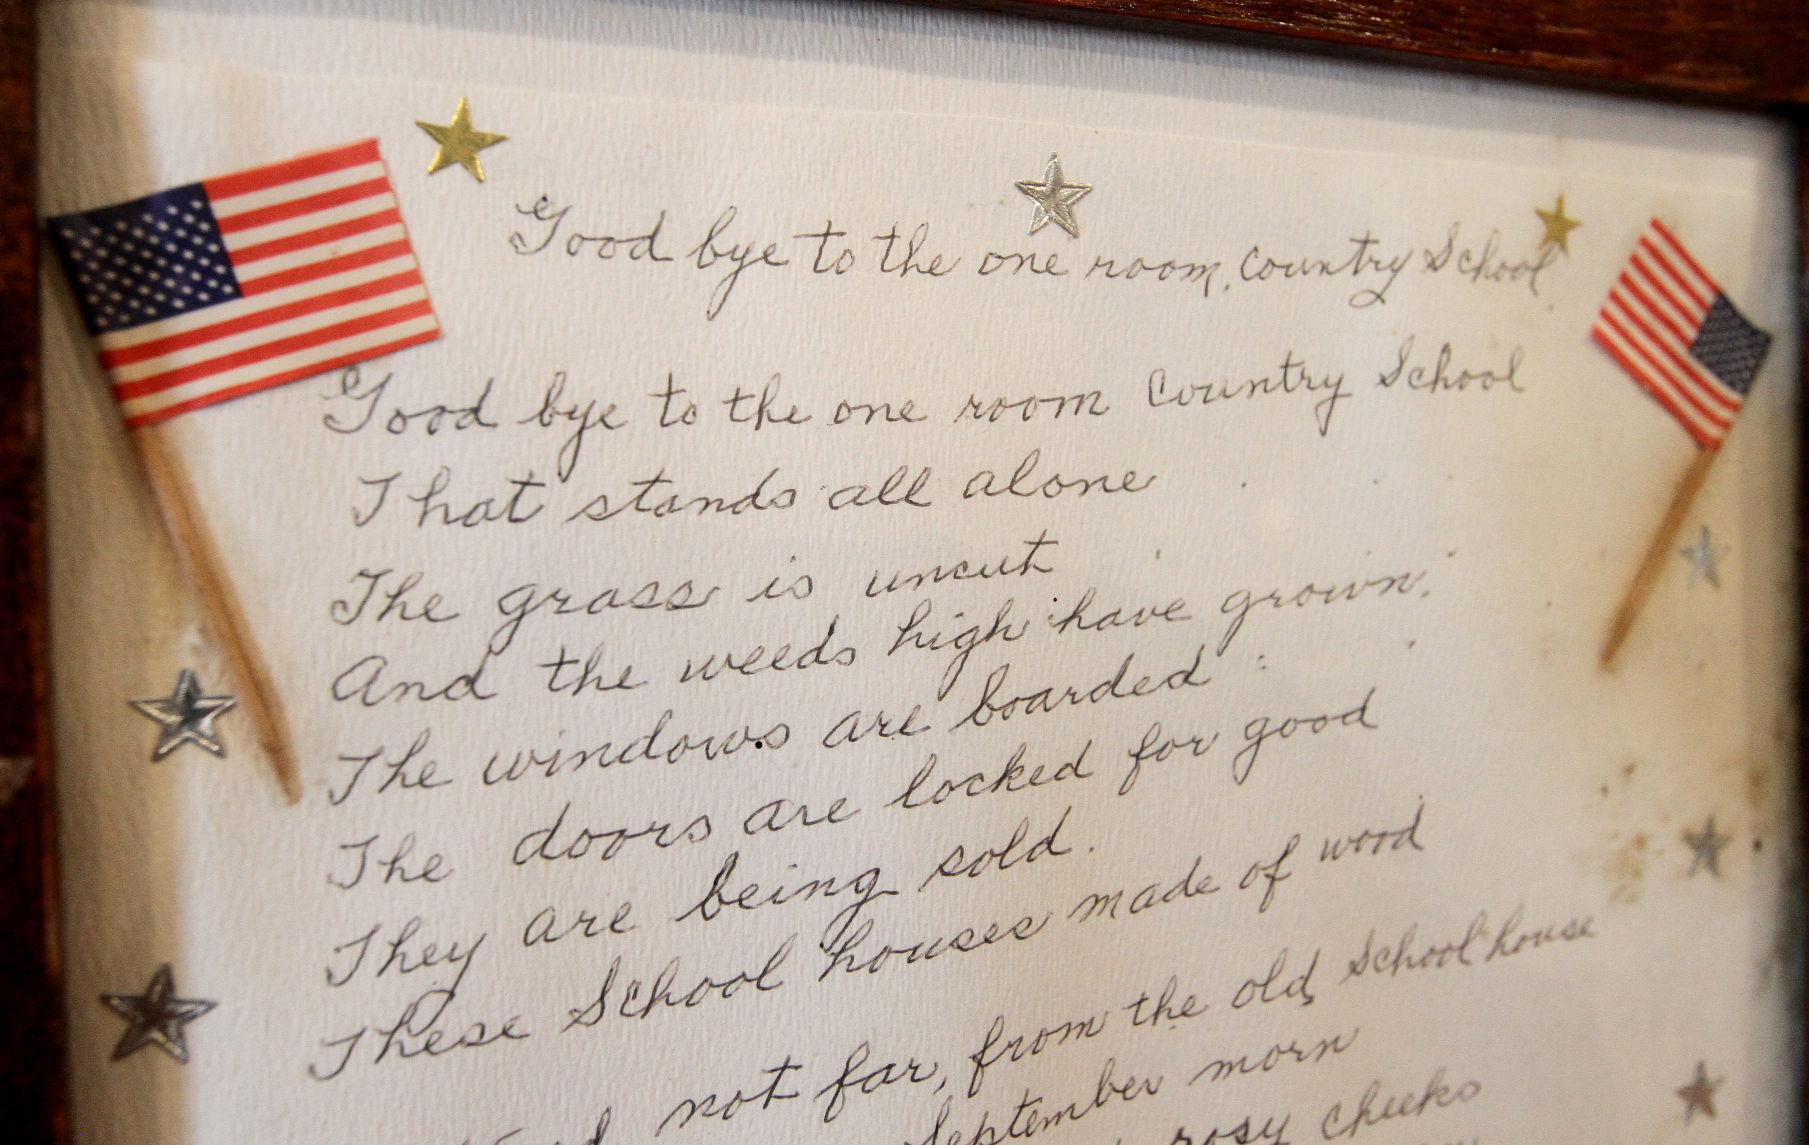 Good bye to the one room, Country School
Good bye to the one room Country School
That stands all alone
The grass is uncut
And the weeds high have grown.
The windows are boarded
The doors are locked for good
They are being sold.
These School houses made of wood
not far, from the old, School house
September morn
rosy cheeks